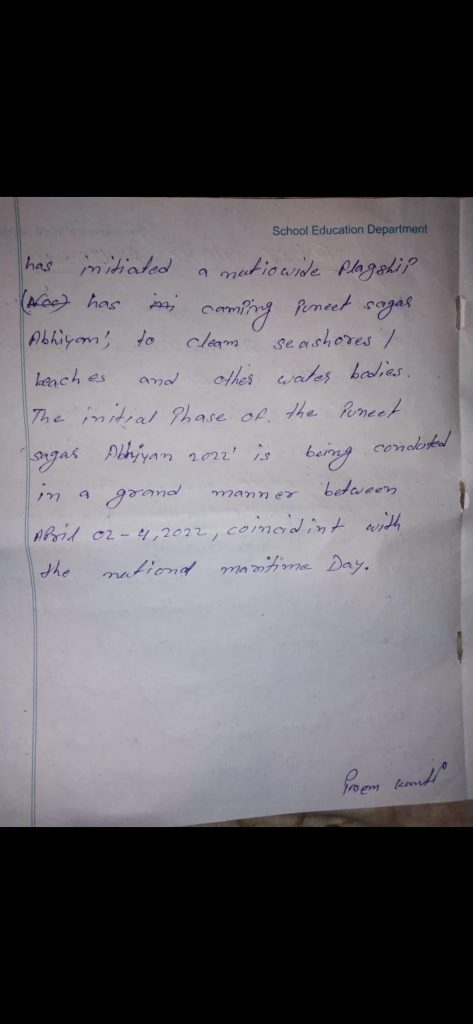 School Education Department
has initiated a natiowide Flagship
(Nee) has ini camping Puneet sagar
Abhiyam', to cleam seashores /
beaches and other water bodies.
The initial Phase of the Puneet
sagar Abhiyan 2022' is being conducted
in a grand manner between
April 02-4, 2022, coincidint with
the nationd maritime Day.
Prem